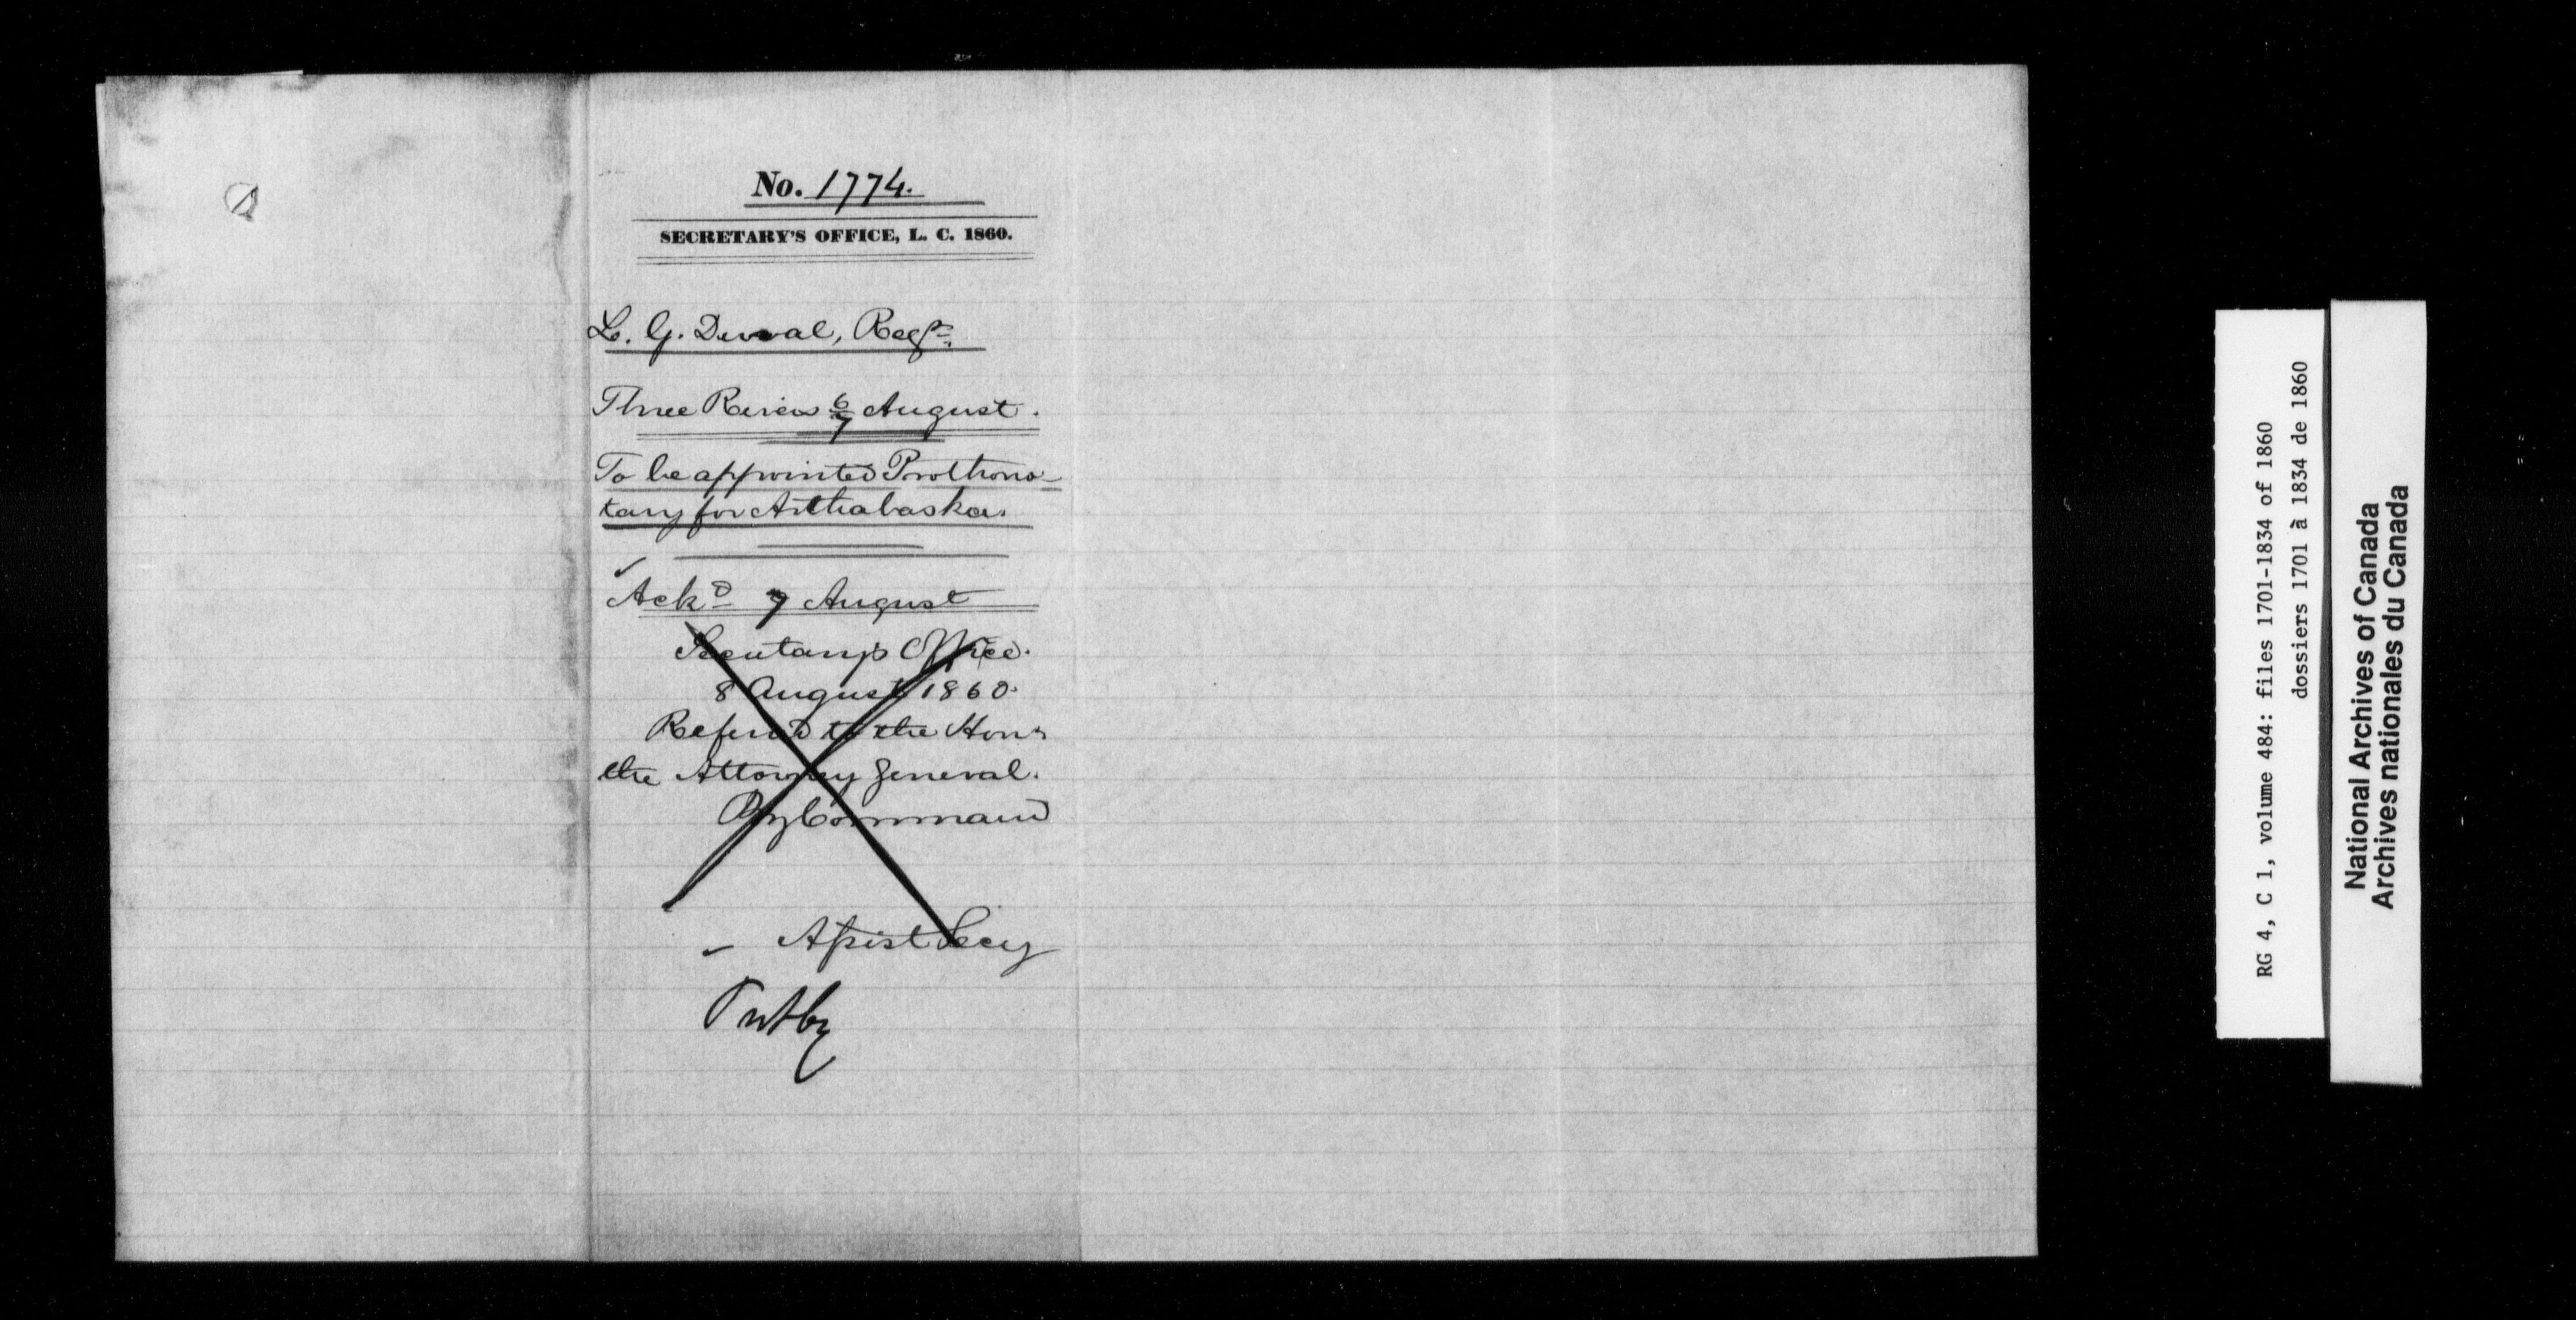 No. 1774.
SECRETARY'S OFFICE, L. C. 1860.
L. G. Duval, Regr.
Three Rivers 6/7 August.
To be appointed Prothono-
tary for Arthabaska.
Ackd 7 August
Secretary's Office.
8 August 1860.
Referred to the Hon.
the Attorney General.
By Command
Assist Secy
RG 4, C 1, volume 484: files 1701-1834 of 1860
dossiers 1701 à 1834 de 1860
National Archives of Canada
Archives nationales du Canada